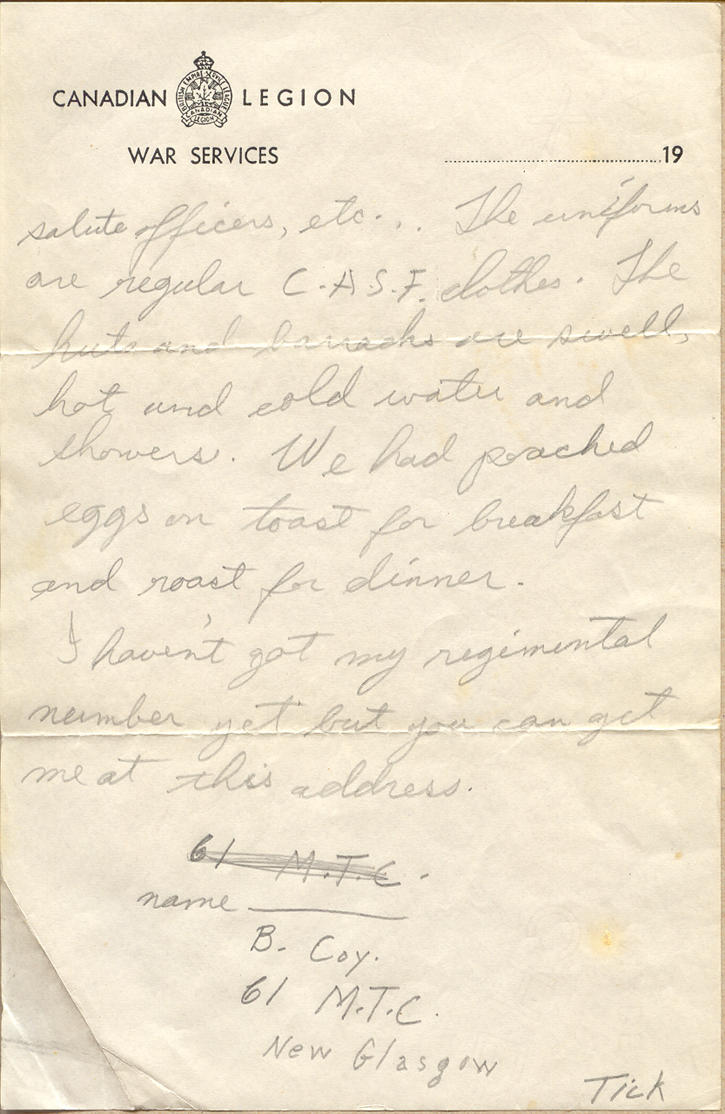 CANADIAN LEGION
WAR SERVICES ........................................19
salute officers, etc... The uniforms
are regular C.A.S.F. clothes. The
huts and barracks are swell,
hot and cold water and
showers. We had poached
eggs on toast for breakfast
and roast for dinner.
I haven't got my regimental
number yet but you can get
me at this address.
61 M.T.C.
name ________
B. Coy.
61 M.T.C.
New Glasgow
Tick